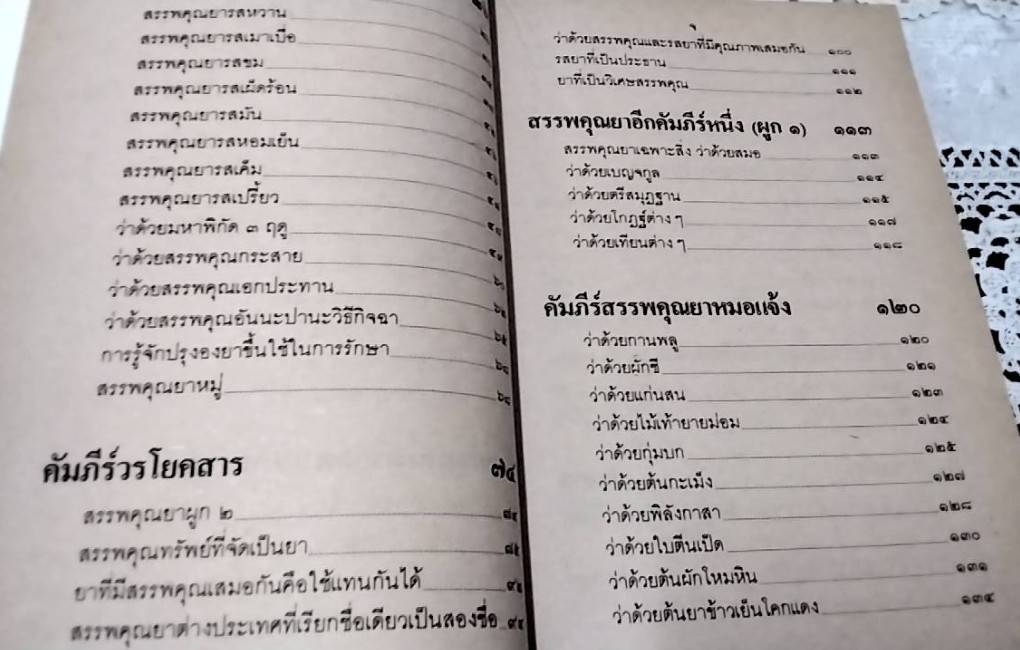 สรรพคุณยารสหวาน
สรรพคุณยารสเมาเบื่อ
สรรพคุณยารสขม
สรรพคุณยารสเผ็ดร้อน
สรรพคุณยารสมัน
สรรพคุณยารสหอมเย็น
สรรพคุณยารสเค็ม
สรรพคุณยารสเปรี้ยว
ว่าด้วยมหาพิกัด ๓ ฤดู
ว่าด้วยสรรพคุณกระสาย
ว่าด้วยสรรพคุณเอกประทาน
ว่าด้วยสรรพคุณอันนะปานะวิธีกิจฉา
การรู้จักปรุงองยาขึ้นใช้ในการรักษา
สรรพคุณยาหมู่
คัมภีร์วรโยคสาร ๗๔
สรรพคุณยาผูก ๒
สรรพคุณทรัพย์ที่จัดเป็นยา
ยาที่มีสรรพคุณเสมอกันคือใช้แทนกันได้
สรรพคุณยาต่างประเทศที่เรียกชื่อเดียวเป็นสองชื่อ
ว่าด้วยสรรพคุณและรสยาที่มีคุณภาพเสมอกัน ๑๐๐
รสยาที่เป็นประธาน ๑๑๑
ยาที่เป็นวิเศษสรรพคุณ ๑๑๒
สรรพคุณยาอีกคัมภีร์หนึ่ง (ผูก ๑) ๑๑๓
สรรพคุณยาเฉพาะสิ่ง ว่าด้วยสมอ ๑๑๓
ว่าด้วยเบญจกูล ๑๑๔
ว่าด้วยตรีสมุฏฐาน ๑๑๕
ว่าด้วยโกฏฐ์ต่าง ๆ ๑๑๗
ว่าด้วยเทียนต่าง ๆ ๑๑๘
คัมภีร์สรรพคุณยาหมอแจ้ง ๑๒๐
ว่าด้วยกานพลู ๑๒๐
ว่าด้วยผักชี ๑๒๑
ว่าด้วยแก่นสน ๑๒๓
ว่าด้วยไม้เท้ายายม่อม ๑๒๔
ว่าด้วยกุ่มบก ๑๒๕
ว่าด้วยต้นกะเม็ง ๑๒๗
ว่าด้วยพิลังกาสา ๑๒๘
ว่าด้วยใบตีนเป็ด ๑๓๐
ว่าด้วยต้นผักใหมหิน ๑๓๑
ว่าด้วยต้นยาข้าวเย็นใคกแดง ๑๓๔